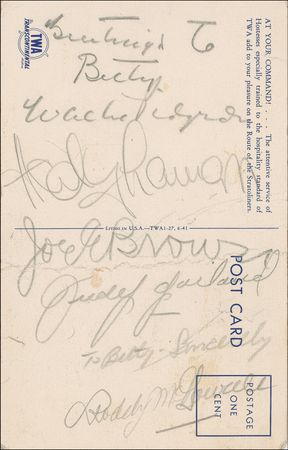 TWA
TRANSCONTINENTAL
AT YOUR COMMAND! . . . The attentive service of
Hostesses especially trained to the hospitality standard of
TWA add to your pleasure on the Route of the Stratoliners.
Greetings To
Betty
Hedy Lamarr
LITHO IN U.S.A.—TWA1-27, 6-41
Joe E Brown
Judy Garland
To Betty - Sincerely
Roddy McDowall
POST CARD
POSTAGE
ONE
CENT